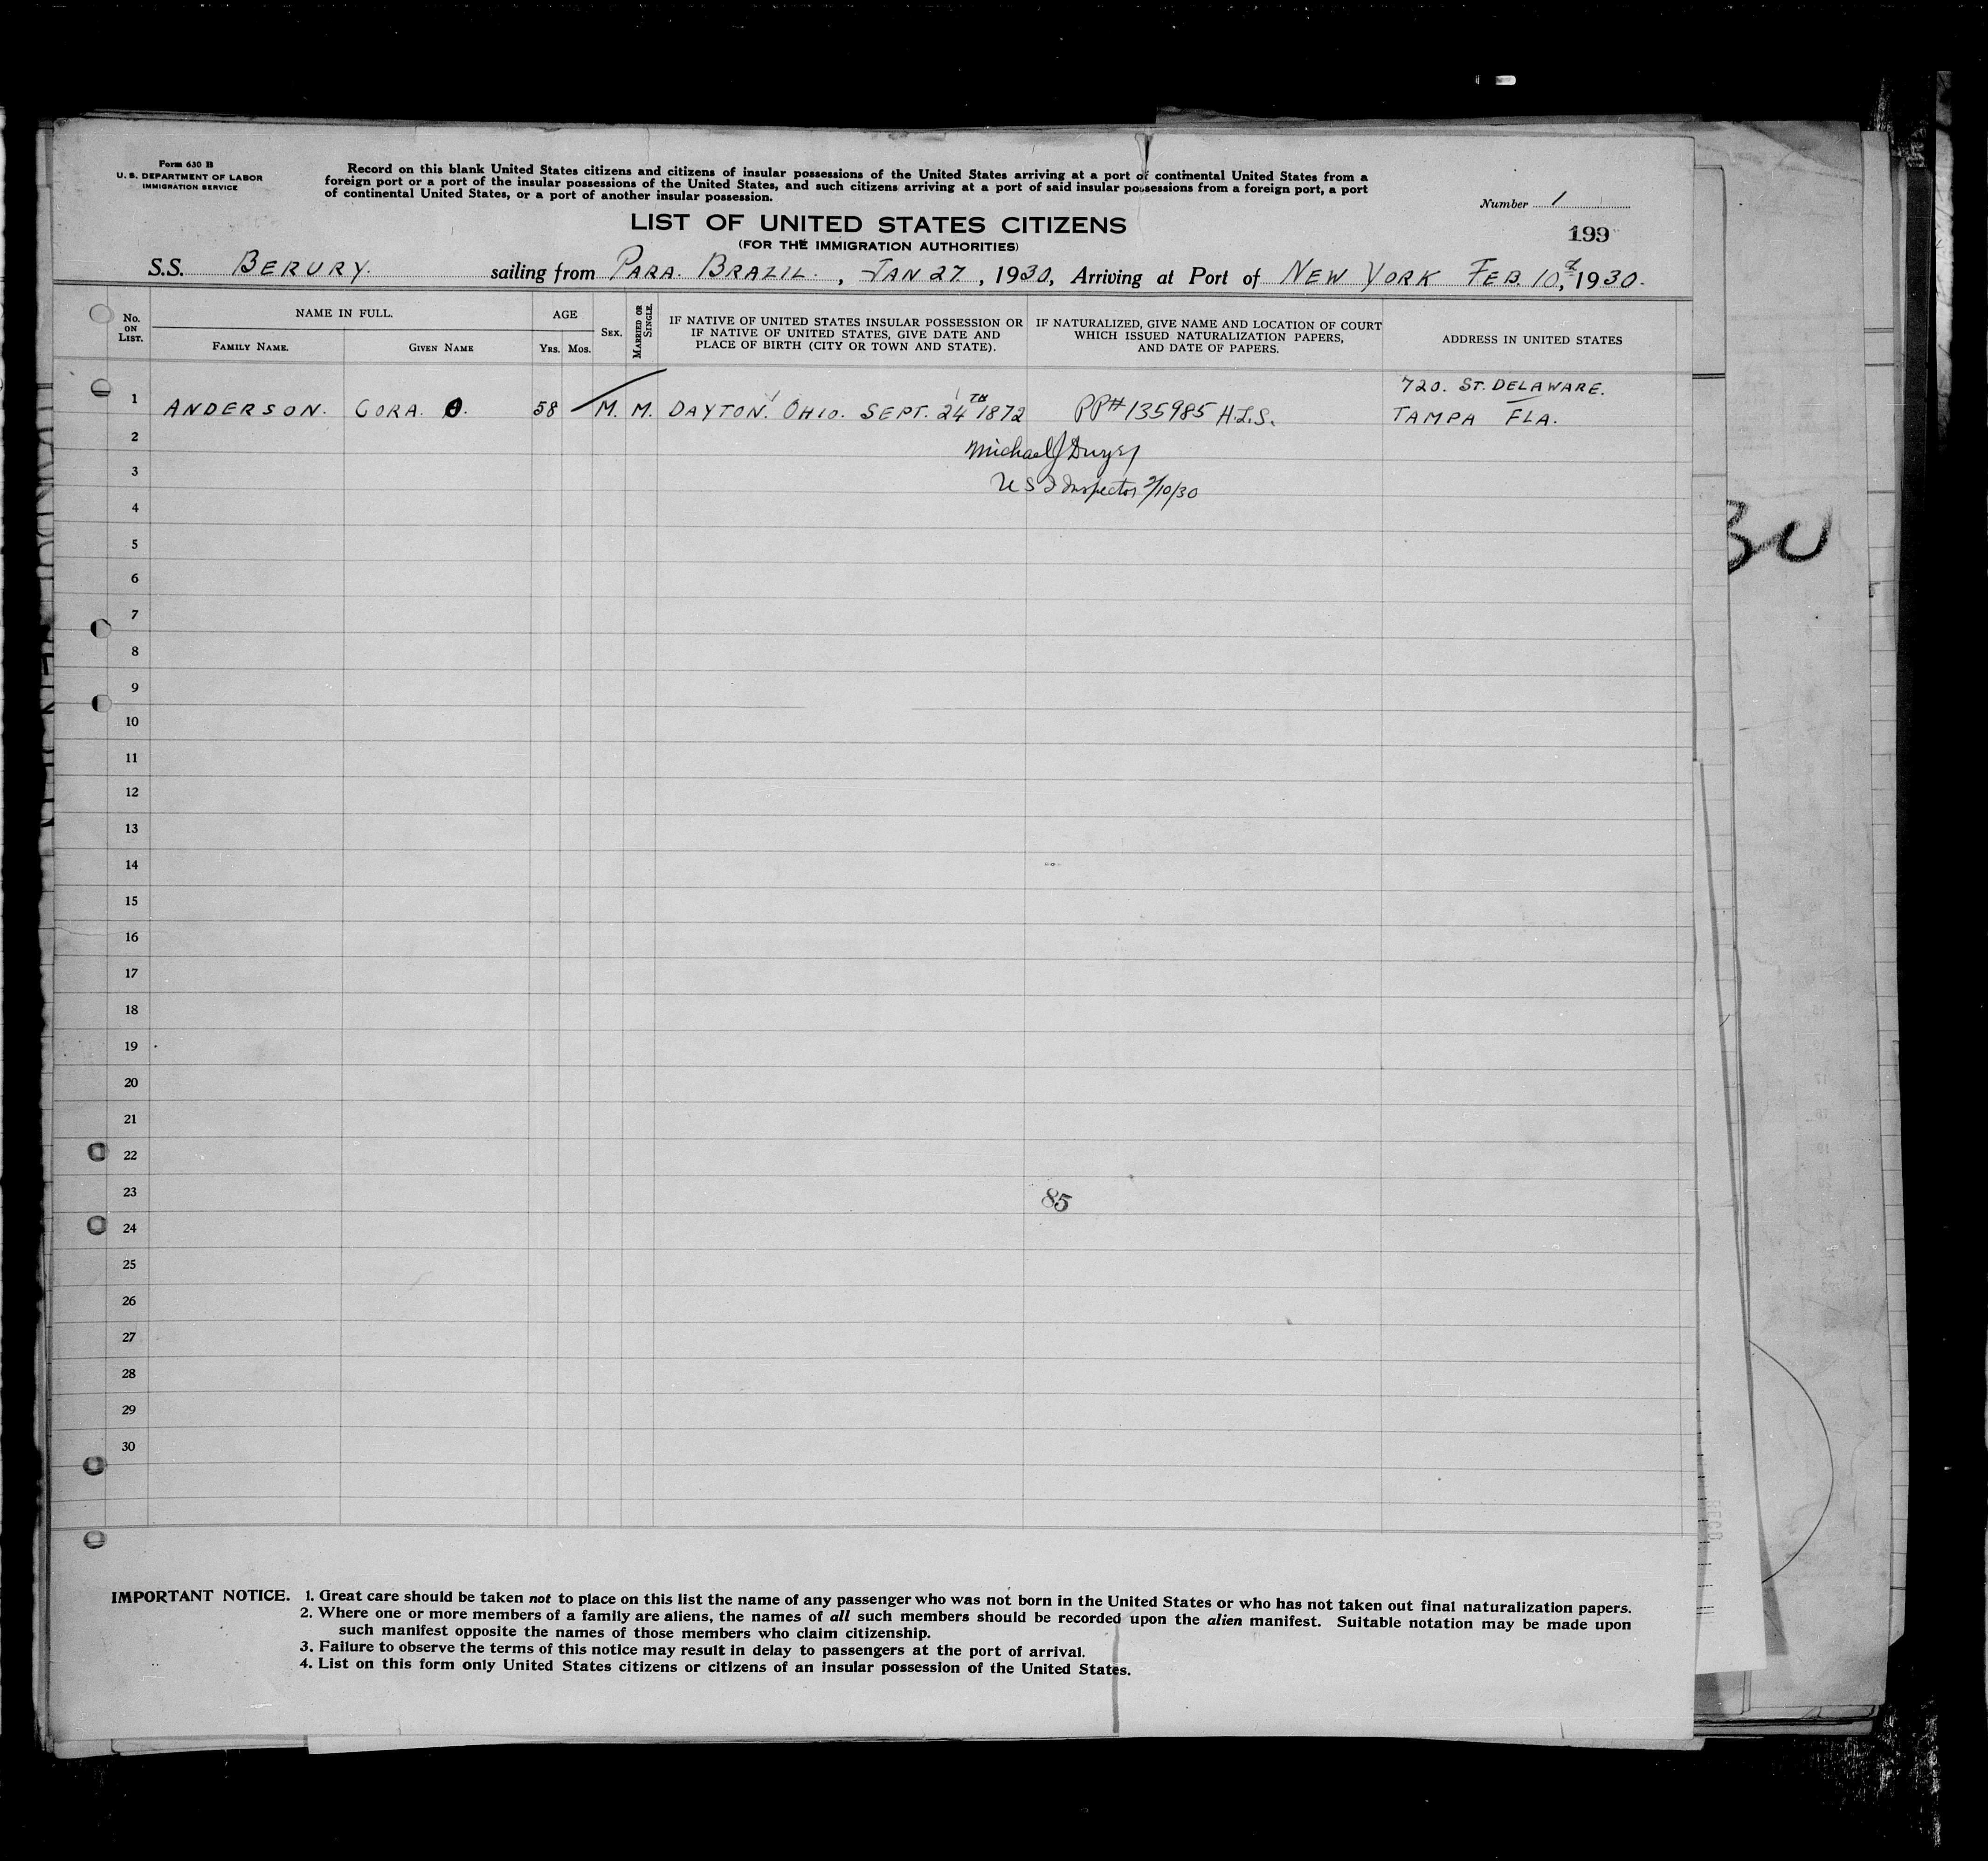 Form 630 B
U. S. DEPARTMENT OF LABOR
IMMIGRATION SERVICE
Record on this blank United States citizens and citizens of insular possessions of the United States arriving at a port of continental United States from a
foreign port or a port of the insular possessions of the United States, and such citizens arriving at a port of said insular possessions from a foreign port, a port
of continental United States, or a port of another insular possession.
Number 1
LIST OF UNITED STATES CITIZENS
(FOR THE IMMIGRATION AUTHORITIES)
199
S.S. BERURY. sailing from PARA. BRAZIL. , JAN 27 , 1930, Arriving at Port of NEW YORK FEB. 10, 1930.
No. ON LIST.
NAME IN FULL.
FAMILY NAME.
GIVEN NAME
AGE
YRS. MOS.
SEX.
MARRIED OR SINGLE.
IF NATIVE OF UNITED STATES INSULAR POSSESSION OR
IF NATIVE OF UNITED STATES, GIVE DATE AND
PLACE OF BIRTH (CITY OR TOWN AND STATE).
IF NATURALIZED, GIVE NAME AND LOCATION OF COURT
WHICH ISSUED NATURALIZATION PAPERS,
AND DATE OF PAPERS.
ADDRESS IN UNITED STATES
720. ST. DELAWARE.
1 ANDERSON. CORA. O. 58 M. M. DAYTON. OHIO. SEPT. 24TH 1872 PP# 135985 H.L.S. TAMPA FLA.
2
Michael J Dwyer
3
U S I Inspector 2/10/30
4
5
30
6
7
8
9
10
11
12
13
14
15
16
17
18
19
20
21
22
23
85
24
25
26
27
28
29
30
IMPORTANT NOTICE. 1. Great care should be taken not to place on this list the name of any passenger who was not born in the United States or who has not taken out final naturalization papers.
2. Where one or more members of a family are aliens, the names of all such members should be recorded upon the alien manifest. Suitable notation may be made upon
such manifest opposite the names of those members who claim citizenship.
3. Failure to observe the terms of this notice may result in delay to passengers at the port of arrival.
4. List on this form only United States citizens or citizens of an insular possession of the United States.